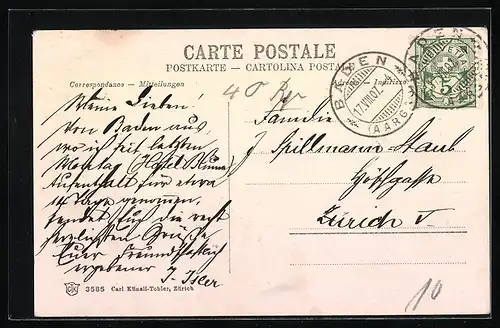 CARTE POSTALE
POSTKARTE — CARTOLINA POSTALE
Correspondance — Mitteilungen
Indirizzo
BADEN
17.VIII.07
(AARG.)
BADEN
5
Meine Lieben!
Von Baden aus,
wo ich seit letzten
Montag (Hotel Blume)
Aufenthalt für etwa
14 Tage genommen,
sendet Euch die recht
herzlichsten Grüße
Euer freundschaftlich
ergebener
J. Isler
Familie
J Spillmann-Staub
Höschgasse
Zürich V
3585 Carl Künzli-Tobler, Zürich
10